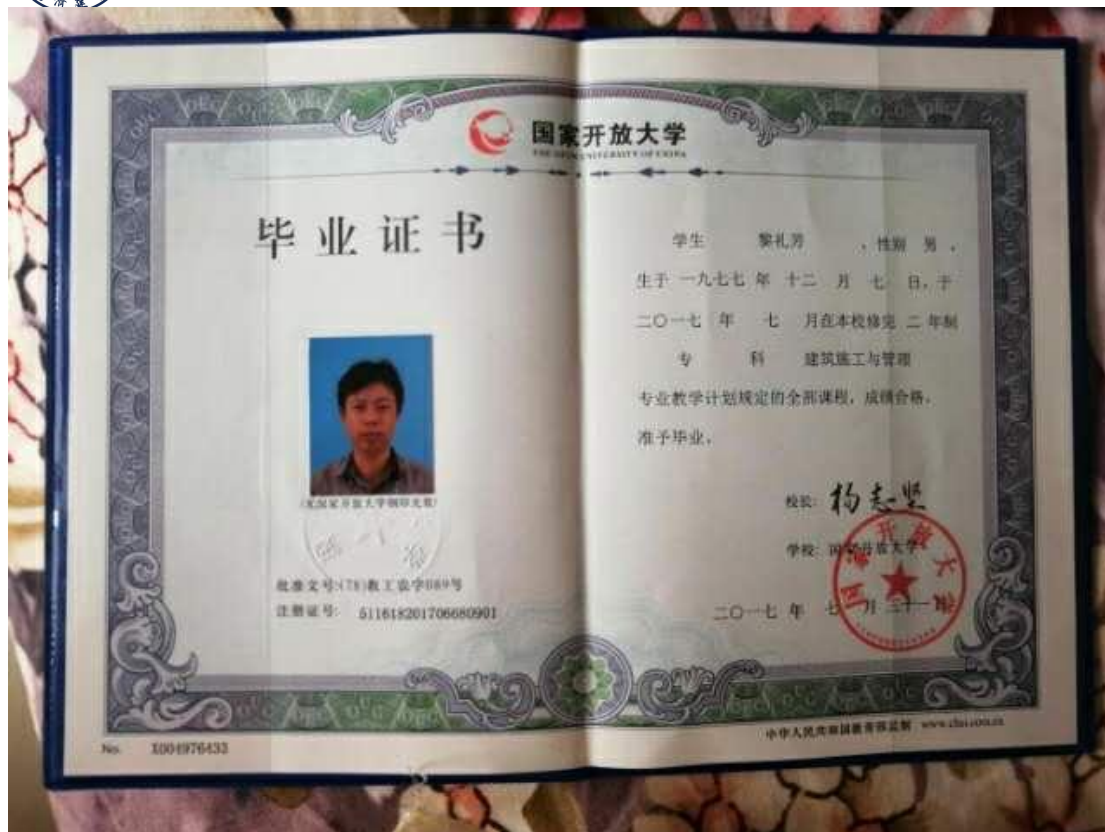 国家开放大学
THE OPEN UNIVERSITY OF CHINA
毕业证书
(无国家开放大学钢印无效)
批准文号:(78)教工农字089号
注册证号: 511618201706680901
学生 黎礼芳 , 性别 男 ,
生于 一九七七 年 十二 月 七 日, 于
二〇一七 年 七 月在本校修完 二 年制
专 科 建筑施工与管理
专业教学计划规定的全部课程, 成绩合格,
准予毕业。
校长: 杨志坚
学校: 国家开放大学
二〇一七 年 七 月 三十一 日
国家开放大学
No. X004976433
中华人民共和国教育部监制 www.chsi.com.cn